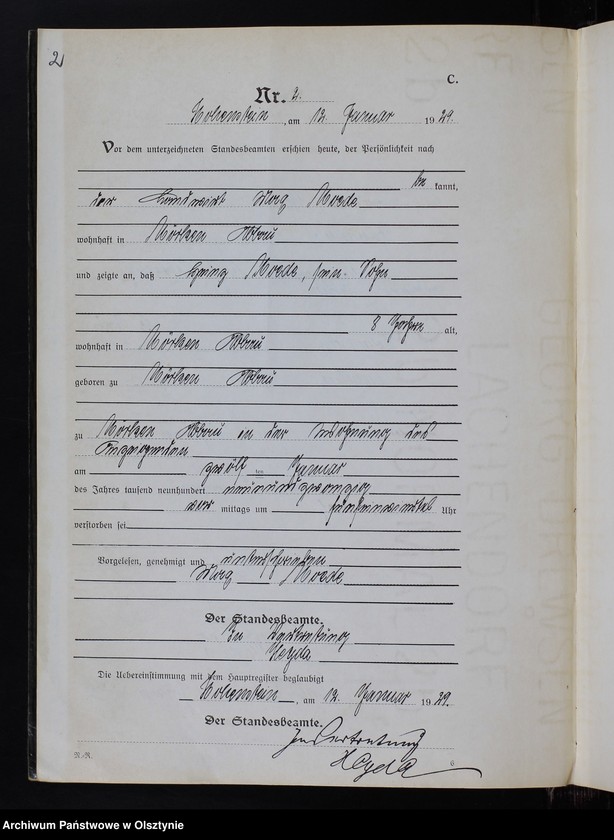 2
C.
Nr. 2.
Hohenstein, am 12. Januar 1929.
Vor dem unterzeichneten Standesbeamten erschien heute, der Persönlichkeit nach
be kannt,
der Landwirt
wohnhaft in Mörken Abbau
und zeigte an, daß sein Sohn
8 Jahre alt,
wohnhaft in Mörken Abbau
geboren zu Mörken Abbau
zu Mörken Abbau in der Wohnung des
am zwölften Januar
des Jahres tausend neunhundert neunundzwanzig
vor mittags um Uhr
verstorben sei.
Vorgelesen, genehmigt und unterschrieben
Der Standesbeamte.
In Vertretung
Heyda
Die Uebereinstimmung mit dem Hauptregister beglaubigt
Hohenstein, am 12. Januar 1929.
Der Standesbeamte.
In Vertretung
Heyda
N.-R.
Archiwum Państwowe w Olsztynie